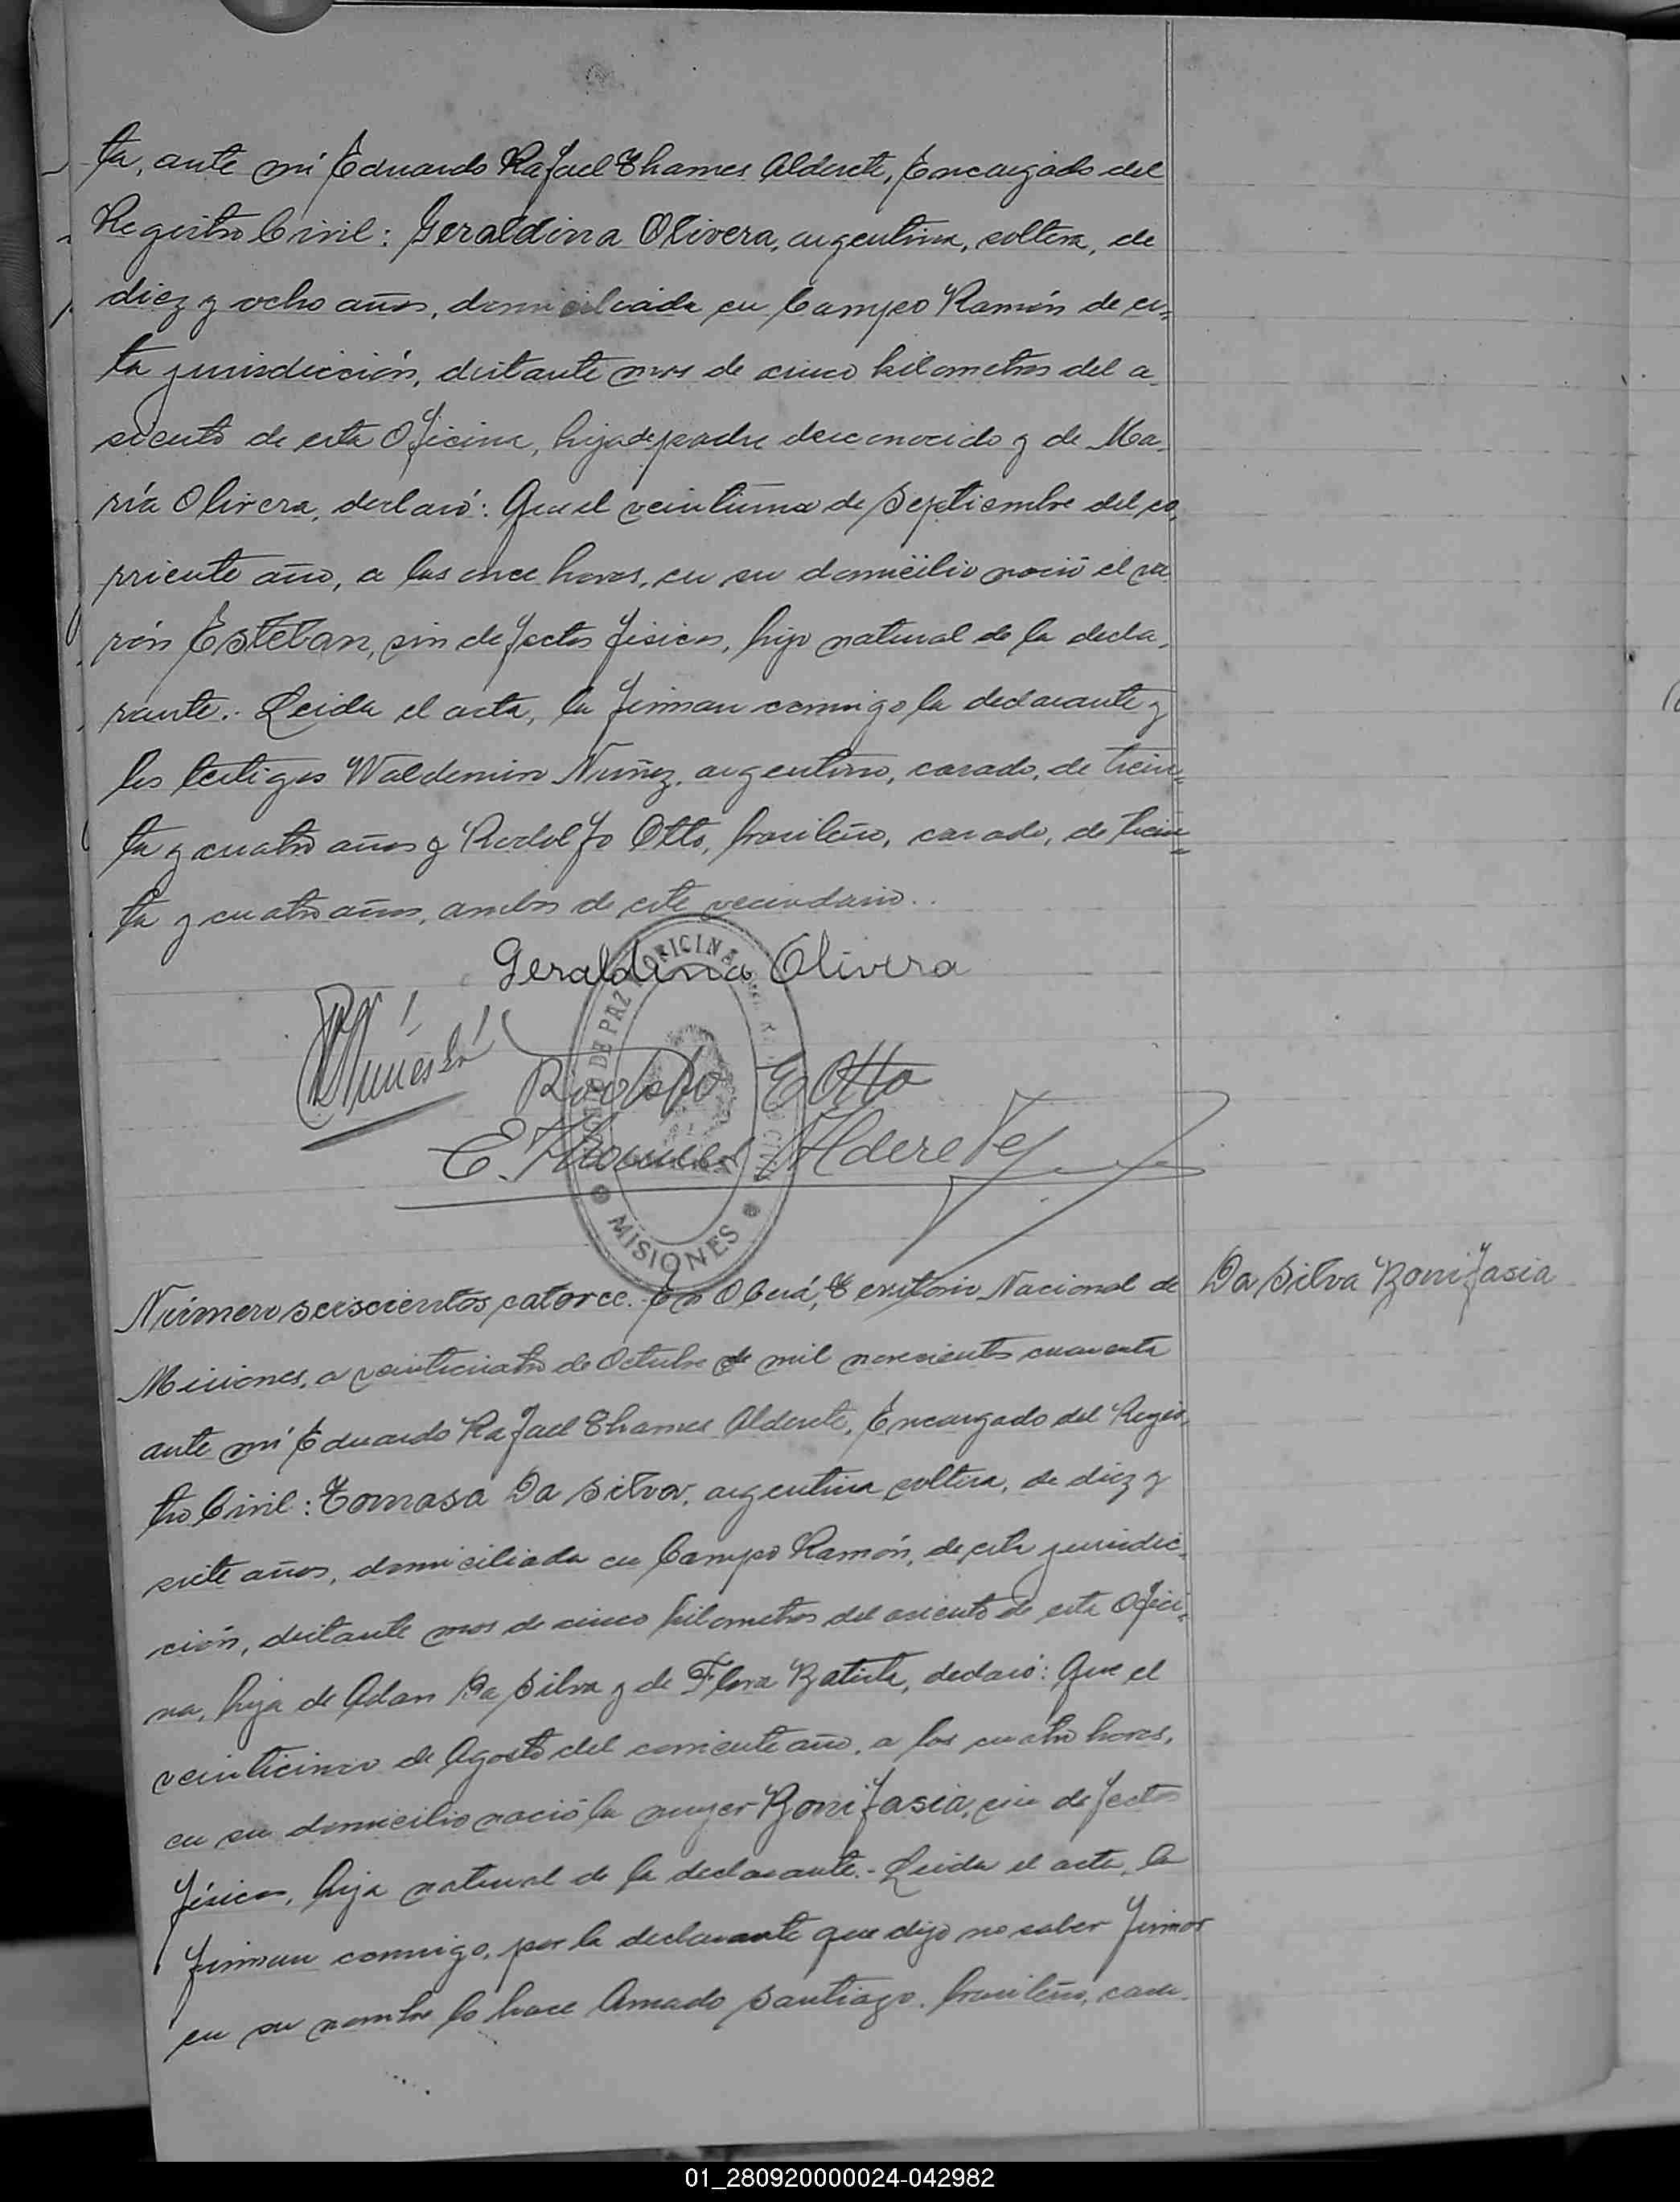 ta, ante mi Eduardo Rafael Thames Alderete, Encargado del
Registro Civil: Geraldina Olivera, argentina, soltera, de
diez y ocho años, domiciliada en Campo Ramón de es-
ta jurisdicción, distante mas de cinco kilometros del a-
siento de esta Oficina, hija de padre desconocido y de Ma-
ría Olivera, declaró: Que el veintiuno de Septiembre del co-
rriente año, a las once horas, en su domicilio nació el va
rón Esteban, sin defectos fisicos, hijo natural de la decla-
rante.- Leida el acta, la firman conmigo la declarante y
los testigos Waldemin Nuñez, argentino, casado, de trein-
ta y cuatro años y Rodolfo Otto, brasileño, casado, de trein-
ta y cuatro años, ambos de este vecindario..
Geraldina Olivera
Rodolfo E Otto
E. Thames Alderete
OFICINA
DE PAZ
MISIONES
Número seiscientos catorce. En Oberá, Territorio Nacional de
Da Silva Bonifasia
Misiones, a veinticuatro de Octubre de mil novecientos cuarenta
ante mi Eduardo Rafael Thames Alderete, Encargado del Regis-
tro Civil: Tomasa Da Silva, argentina soltera, de diez y
siete años, domiciliada en Campo Ramón, de esta jurisdic-
ción, distante mas de cinco kilometros del asiento de esta Ofici-
na, hija de Adan Da Silva y de Flora Batista, declaró: Que el
veinticinco de Agosto del corriente año, a las cuatro horas,
en su domicilio nació la mujer Bonifasia, sin defectos
fisicos, hija natural de la declarante.- Leida el acta, la
firman conmigo, por la declarante que dijo no saber firmar
en su nombre lo hace Amado Santiago, brasileño, casa-
01_280920000024-042982